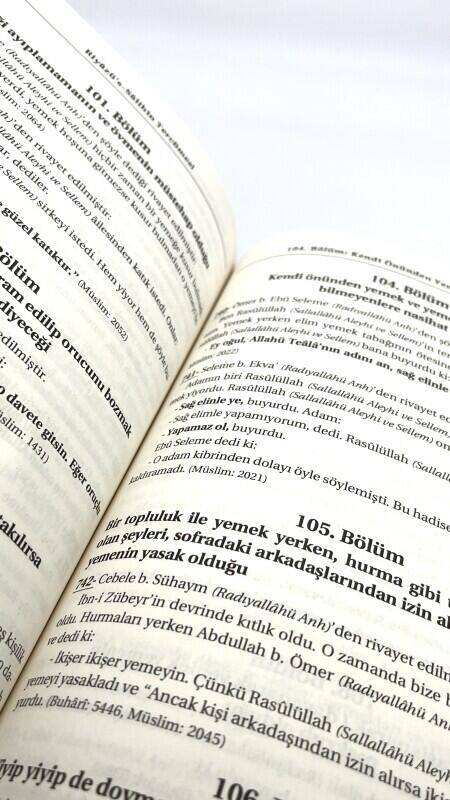 Riyâzü's-Sâlihîn Tercümesi
101. Bölüm
ayıplamamanın ve övmenin müstehap olduğu
(Radıyallâhü Anh)'den şöyle dediği rivayet edilmiştir:
Aleyhi ve Sellem) hiçbir zaman bir yemeğe kusur
yerdi, yemek hoşuna gitmezse kusur bulmadan o
(Müslim: 2064)
'den rivayet edilmiştir:
Aleyhi ve Sellem) ailesinden katık istedi. Onlar:
dediler.
Sellem) sirkeyi istedi. Hem yiyor hem de şöyle
güzel katıktır." (Müslim: 2052)
Bölüm
edilip orucunu bozmak
diyeceği
edilmiştir:
davete gitsin. Eğer oruçlu
1431)
takılırsa
kişilik
da.
yiyip yiyip de
104. Bölüm: Kendi Önünden
104. Bölüm
Kendi önünden yemek ve
bilmeyenlere nasihat
Ömer b. Ebû Seleme (Radıyallâhü Anh)'den
Ben Rasûlüllah (Sallallâhü Aleyhi ve Sellem)'in
Yemek yerken elim yemek tabağının
(Sallallâhü Aleyhi ve Sellem) bana buyurdu ki:
Ey oğul, Allahü Teâlâ'nın adını an, sağ elinle
2022)
741- Seleme b. Ekva' (Radıyallâhü Anh)'den rivayet
Adamın biri Rasûlüllah (Sallallâhü Aleyhi ve Sellem)
yiyordu. Rasûlüllah (Sallallâhü Aleyhi ve Sellem)
- Sağ elinle ye, buyurdu. Adam:
- Sağ elimle yapamıyorum, dedi. Rasûlüllah
- Yapamaz ol, buyurdu.
Ebû Seleme dedi ki:
- O adam kibrinden dolayı öyle söylemişti. Bu
kaldıramadı. (Müslim: 2021)
105. Bölüm
Bir topluluk ile yemek yerken, hurma gibi
olan şeyleri, sofradaki arkadaşlarından izin
yemenin yasak olduğu
742- Cebele b. Sühaym (Radıyallâhü Anh)'den rivayet
İbn-i Zübeyr'in devrinde kıtlık oldu. O zamanda bize
oldu. Hurmaları yerken Abdullah b. Ömer (Radıyallâhü
ve dedi ki:
- İkişer ikişer yemeyin. Çünkü Rasûlüllah (Sallallâhü
yemeyi yasakladı ve "Ancak kişi arkadaşından izin alırsa
yurdu. (Buhârî: 5446, Müslim: 2045)
106.